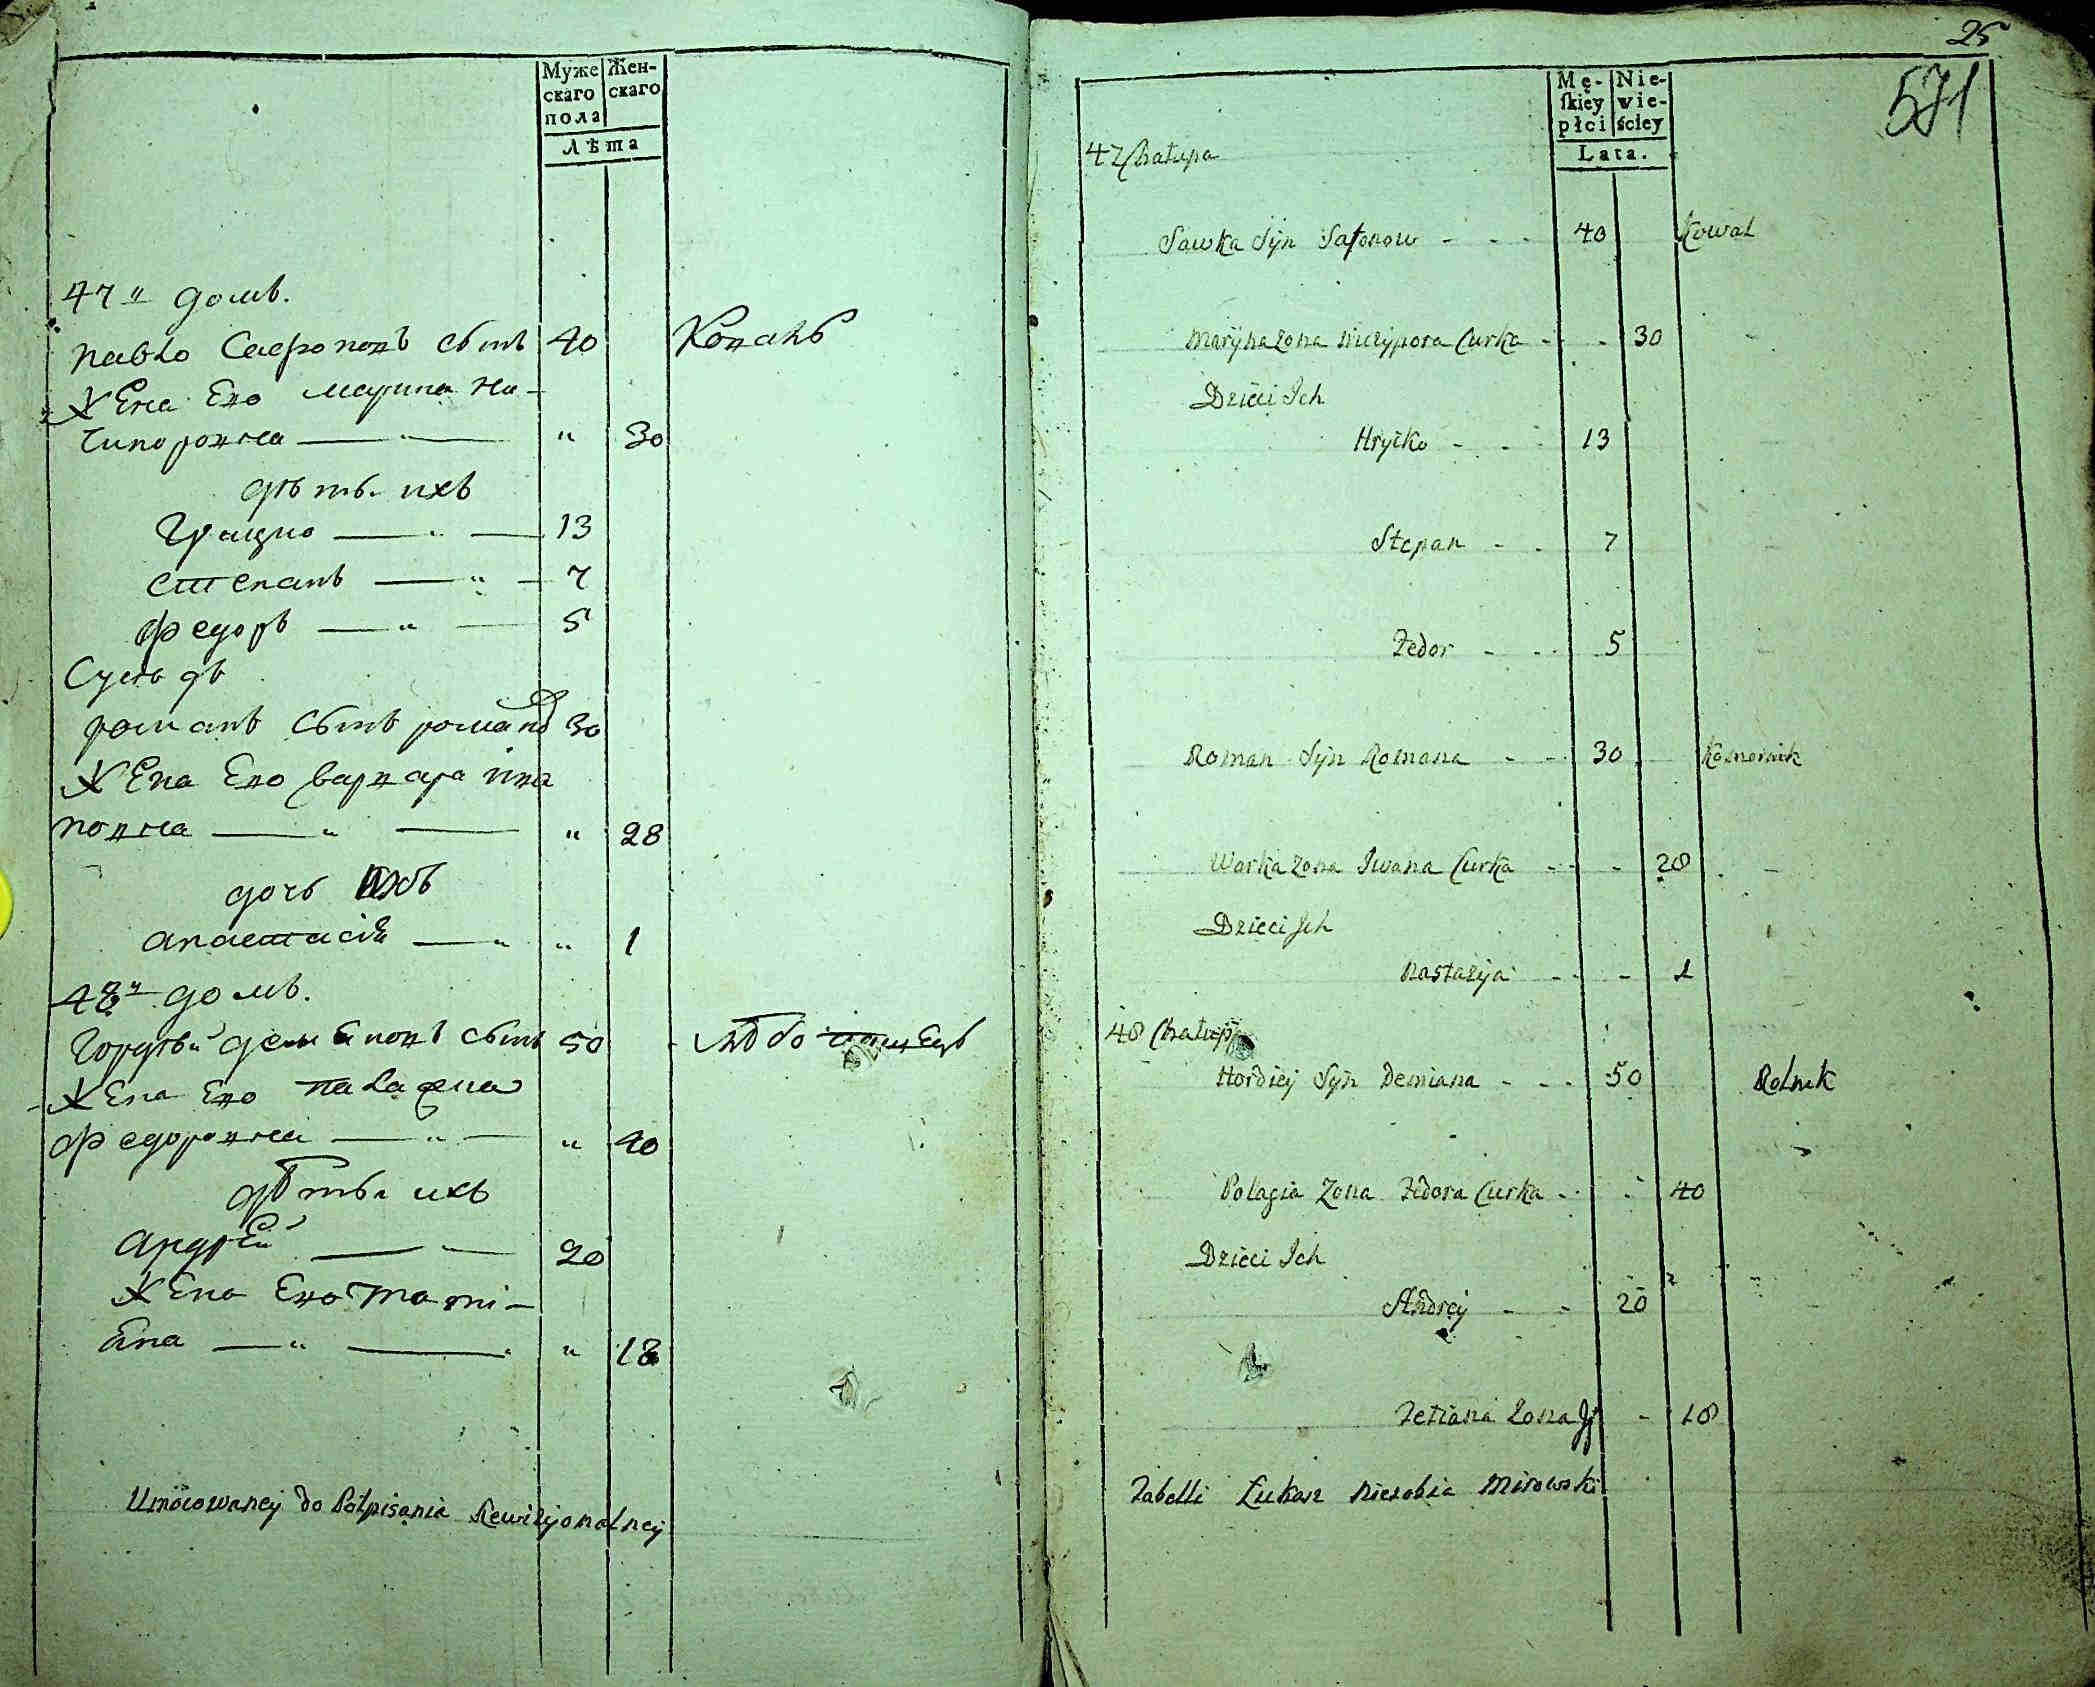 Муже
скаго
пола
Жен-
скаго
лѣта
47 домъ.
павло Сафроновъ сынъ 40 Коваль
Жена Ево марина ни-
чипоровна " 30
дѣти ихъ
Грицко 13
степанъ 7
федоръ 5
Сусѣдъ
романъ сынъ романо 30
Жена Ево варвара ива
новна " 28
дочь ихъ
анастасия " 1
48 домъ.
Гордѣй демяновъ сынъ 50
Жена Ево палагея
федоровна " 40
дѣти ихъ
андрей 20
Жена Ево тати-
яна " 18
Umocowaney do Potpisania Rewizyonalney
25
571
Mę-
skiey
płci
Nie-
wie-
ściey
Lata.
47 Chałupa
Sawka Syn Safonow 40 Kowal
Maryna Zona Niczypora Curka 30
Dzieci Ich
Hryćko 13
Stepan 7
Fedor 5
Roman Syn Romana 30 Komornik
Warka Zona Iwana Curka 28
Dzieci Ich
Nastazyia 1
48 Chałupa
Hordiey Syn Demiana 50 Rolnik
Polagia Zona Fedora Curka 40
Dzieci Ich
Andrey 20
Tetiana Zona Je 18
Tabelli Łukasz Mirowski